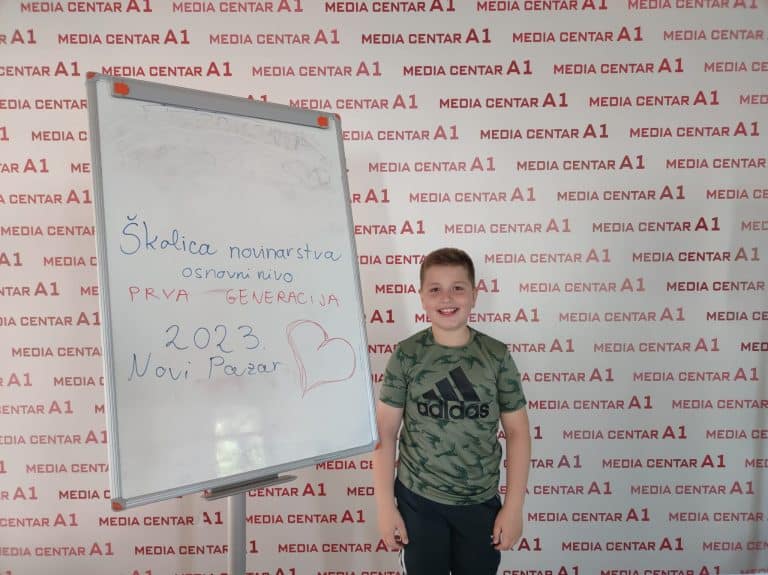 Školica novinarstva
osnovni nivo
PRVA GENERACIJA
2023.
Novi Pazar
adidas
MEDIA CENTAR A1